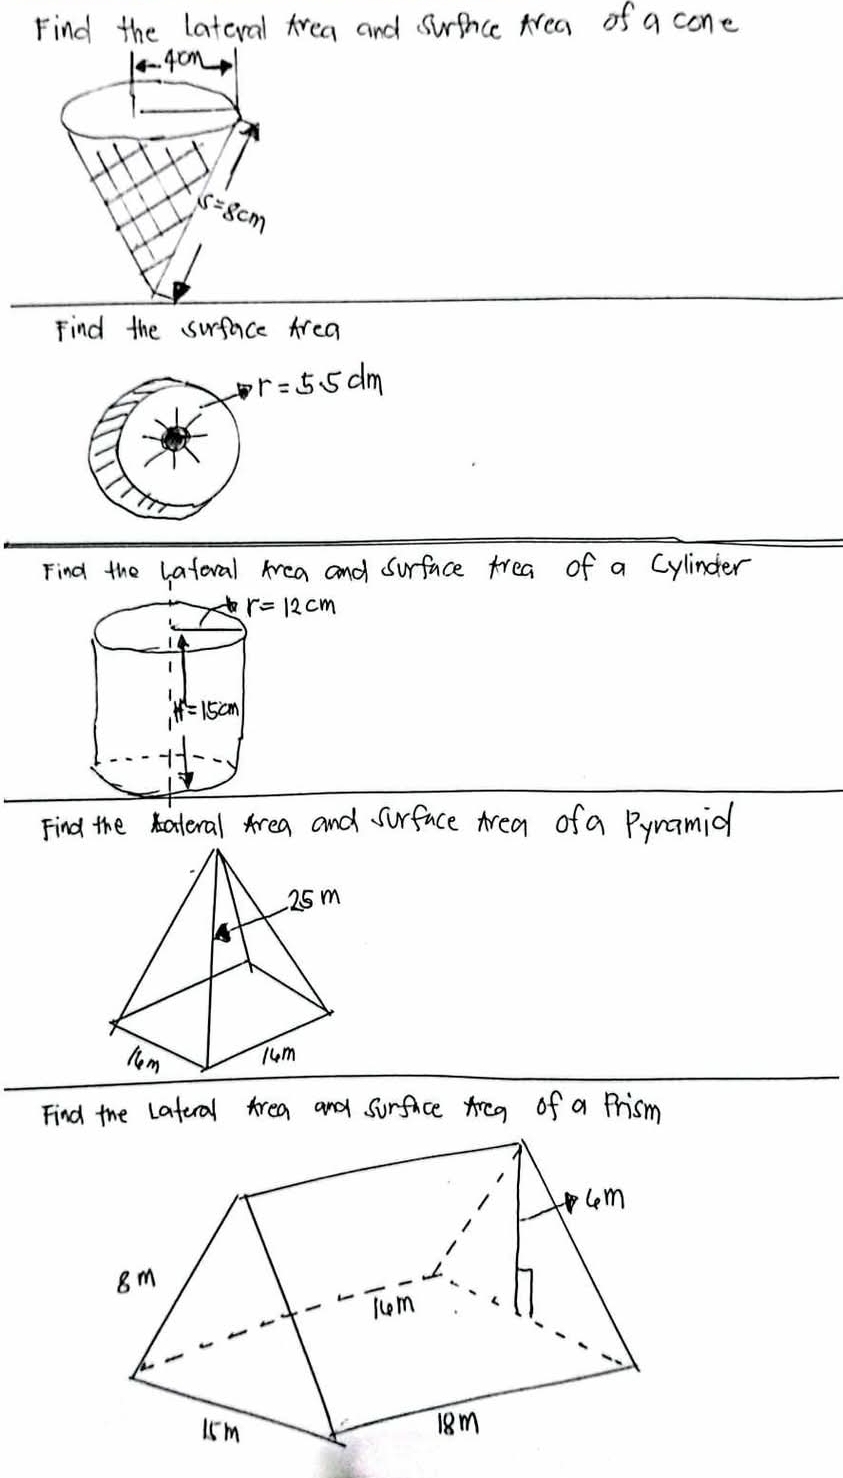 Find the Lateral Area and Surface Area of a cone
4cm
S=8cm
Find the surface Area
r=5.5dm
Find the Lateral Area and Surface Area of a Cylinder
r=12cm
H=15cm
Find the Lateral Area and Surface Area of a Pyramid
25m
16m
16m
Find the Lateral Area and Surface Area of a Prism
6m
8m
16m
15m
18m